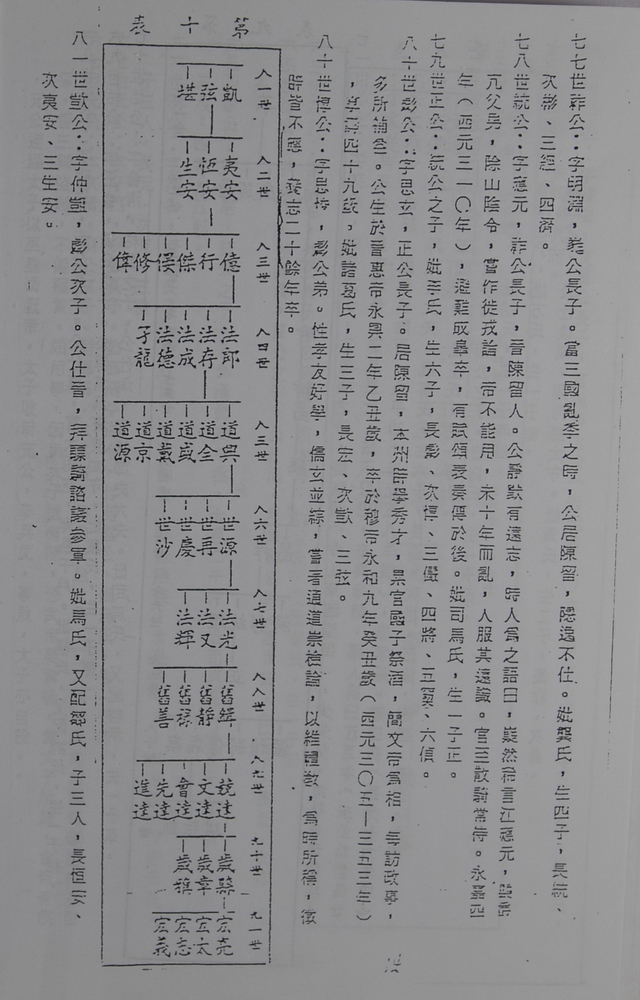 七七世祚公：字明淵，義公長子。當三國亂季之時，公居陳留，隱逸不仕。妣龔氏，生四子，長統、
次彬、三經、四濟。
七八世統公：字應元，祚公長子，晉陳留人。公靜默有遠志，時人為之語曰，嶷然希言江應元，與
亢父男，除山陰令，嘗作徙戎論，帝不能用，未十年而亂，人服其遠識。官至散騎常侍。永嘉四
年（西元三一〇年），避難成皋卒，有賦頌表奏傳於後。妣司馬氏，生一子正。
七九世正公：統公之子，妣李氏，生六子，長彪、次惇、三儼、四將、五
、六
。
八十世彪公：字思玄，正公長子。居陳留，本州
舉秀才，
官國子祭酒，簡文帝為相，每訪政事，
多所補益。公生於晉惠帝永興二年乙丑歲，卒於穆帝永和九年癸丑歲（西元三〇五—三五三年）
，享壽四十九歲。妣諸葛氏，生三子，長宏、次歆、三弦。
八十世惇公：字思悛，彪公弟。性孝友好學，儒玄並綜，嘗著通道崇檢論，以維禮教，為時所稱，徵
辟皆不應，養志二十餘年卒。
第十表
八一世
凱
弦
堪
八二世
夷安
恆安
生安
八三世
億
行
傑
偀
修
偉
八四世
法郎
法存
法成
法德
子龍
八三世
道興
道全
道盛
道戴
道京
道源
八六世
世源
世再
世慶
世沙
八七世
法光
法又
法輝
八八世
舊緝
舊靜
舊祿
舊善
八九世
競達
文達
會達
先達
進達
九十世
歲縣
歲幸
歲稹
九一世
宏亮
宏太
宏志
宏義
八一世歆公：字仲凱，彪公次子。公仕晉，拜驃騎諮議參軍。妣馬氏，又配鄒氏，子三人，長恆安、
次夷安、三生安。